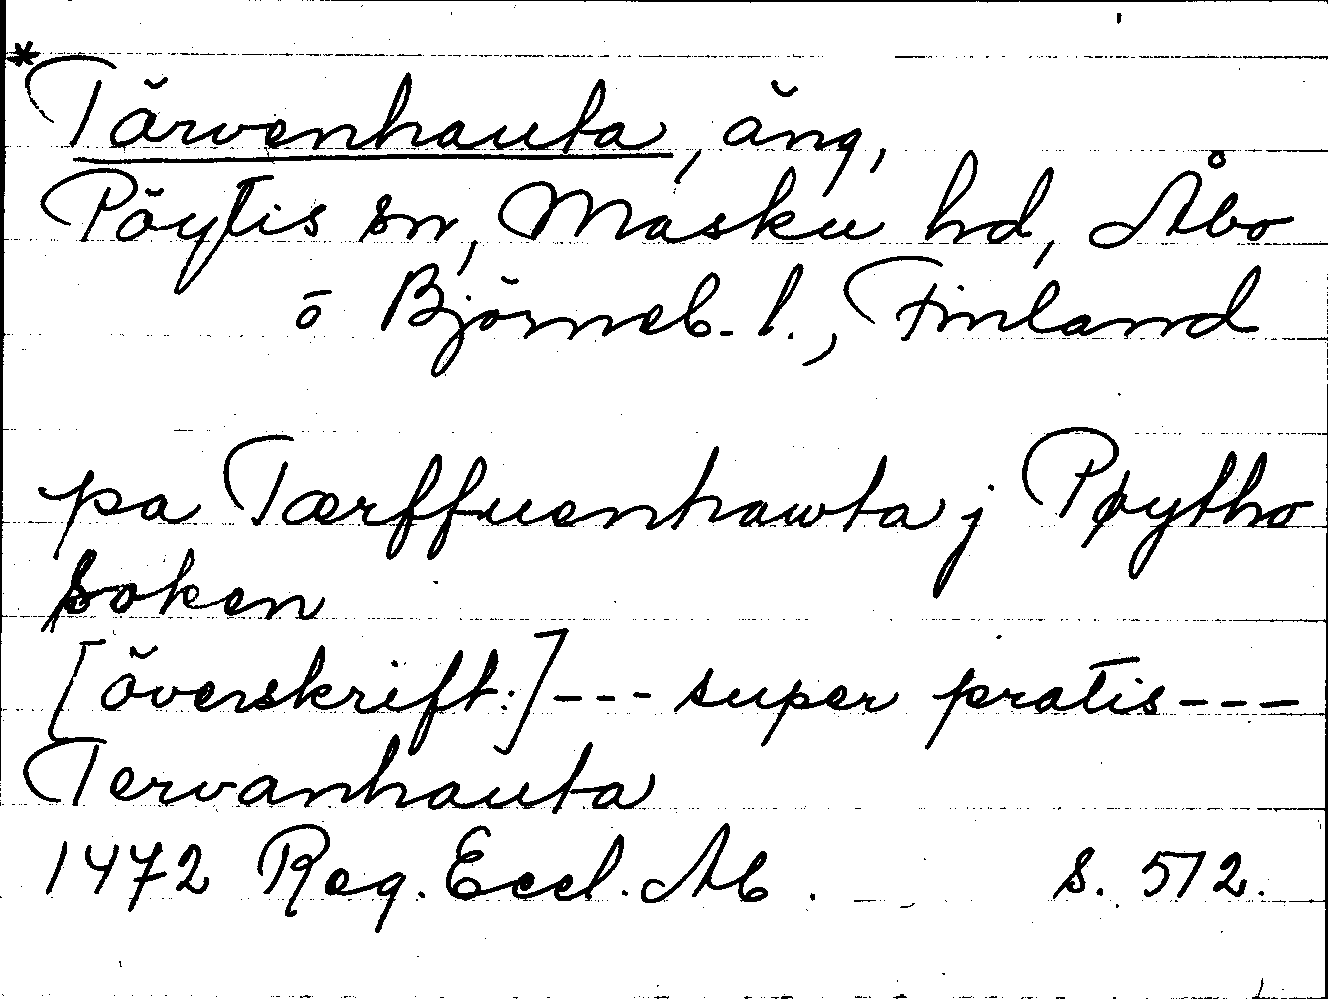 *
Tärvenhauta, äng,
Pöytis sn, Masku hd, Åbo
o Björneb. l., Finland
pa Tærffuenhawta j Pøytho
soken
[överskrift:]--- super pratis---
Tervanhauta
1472 Reg. Eccl. Ab. s. 512.